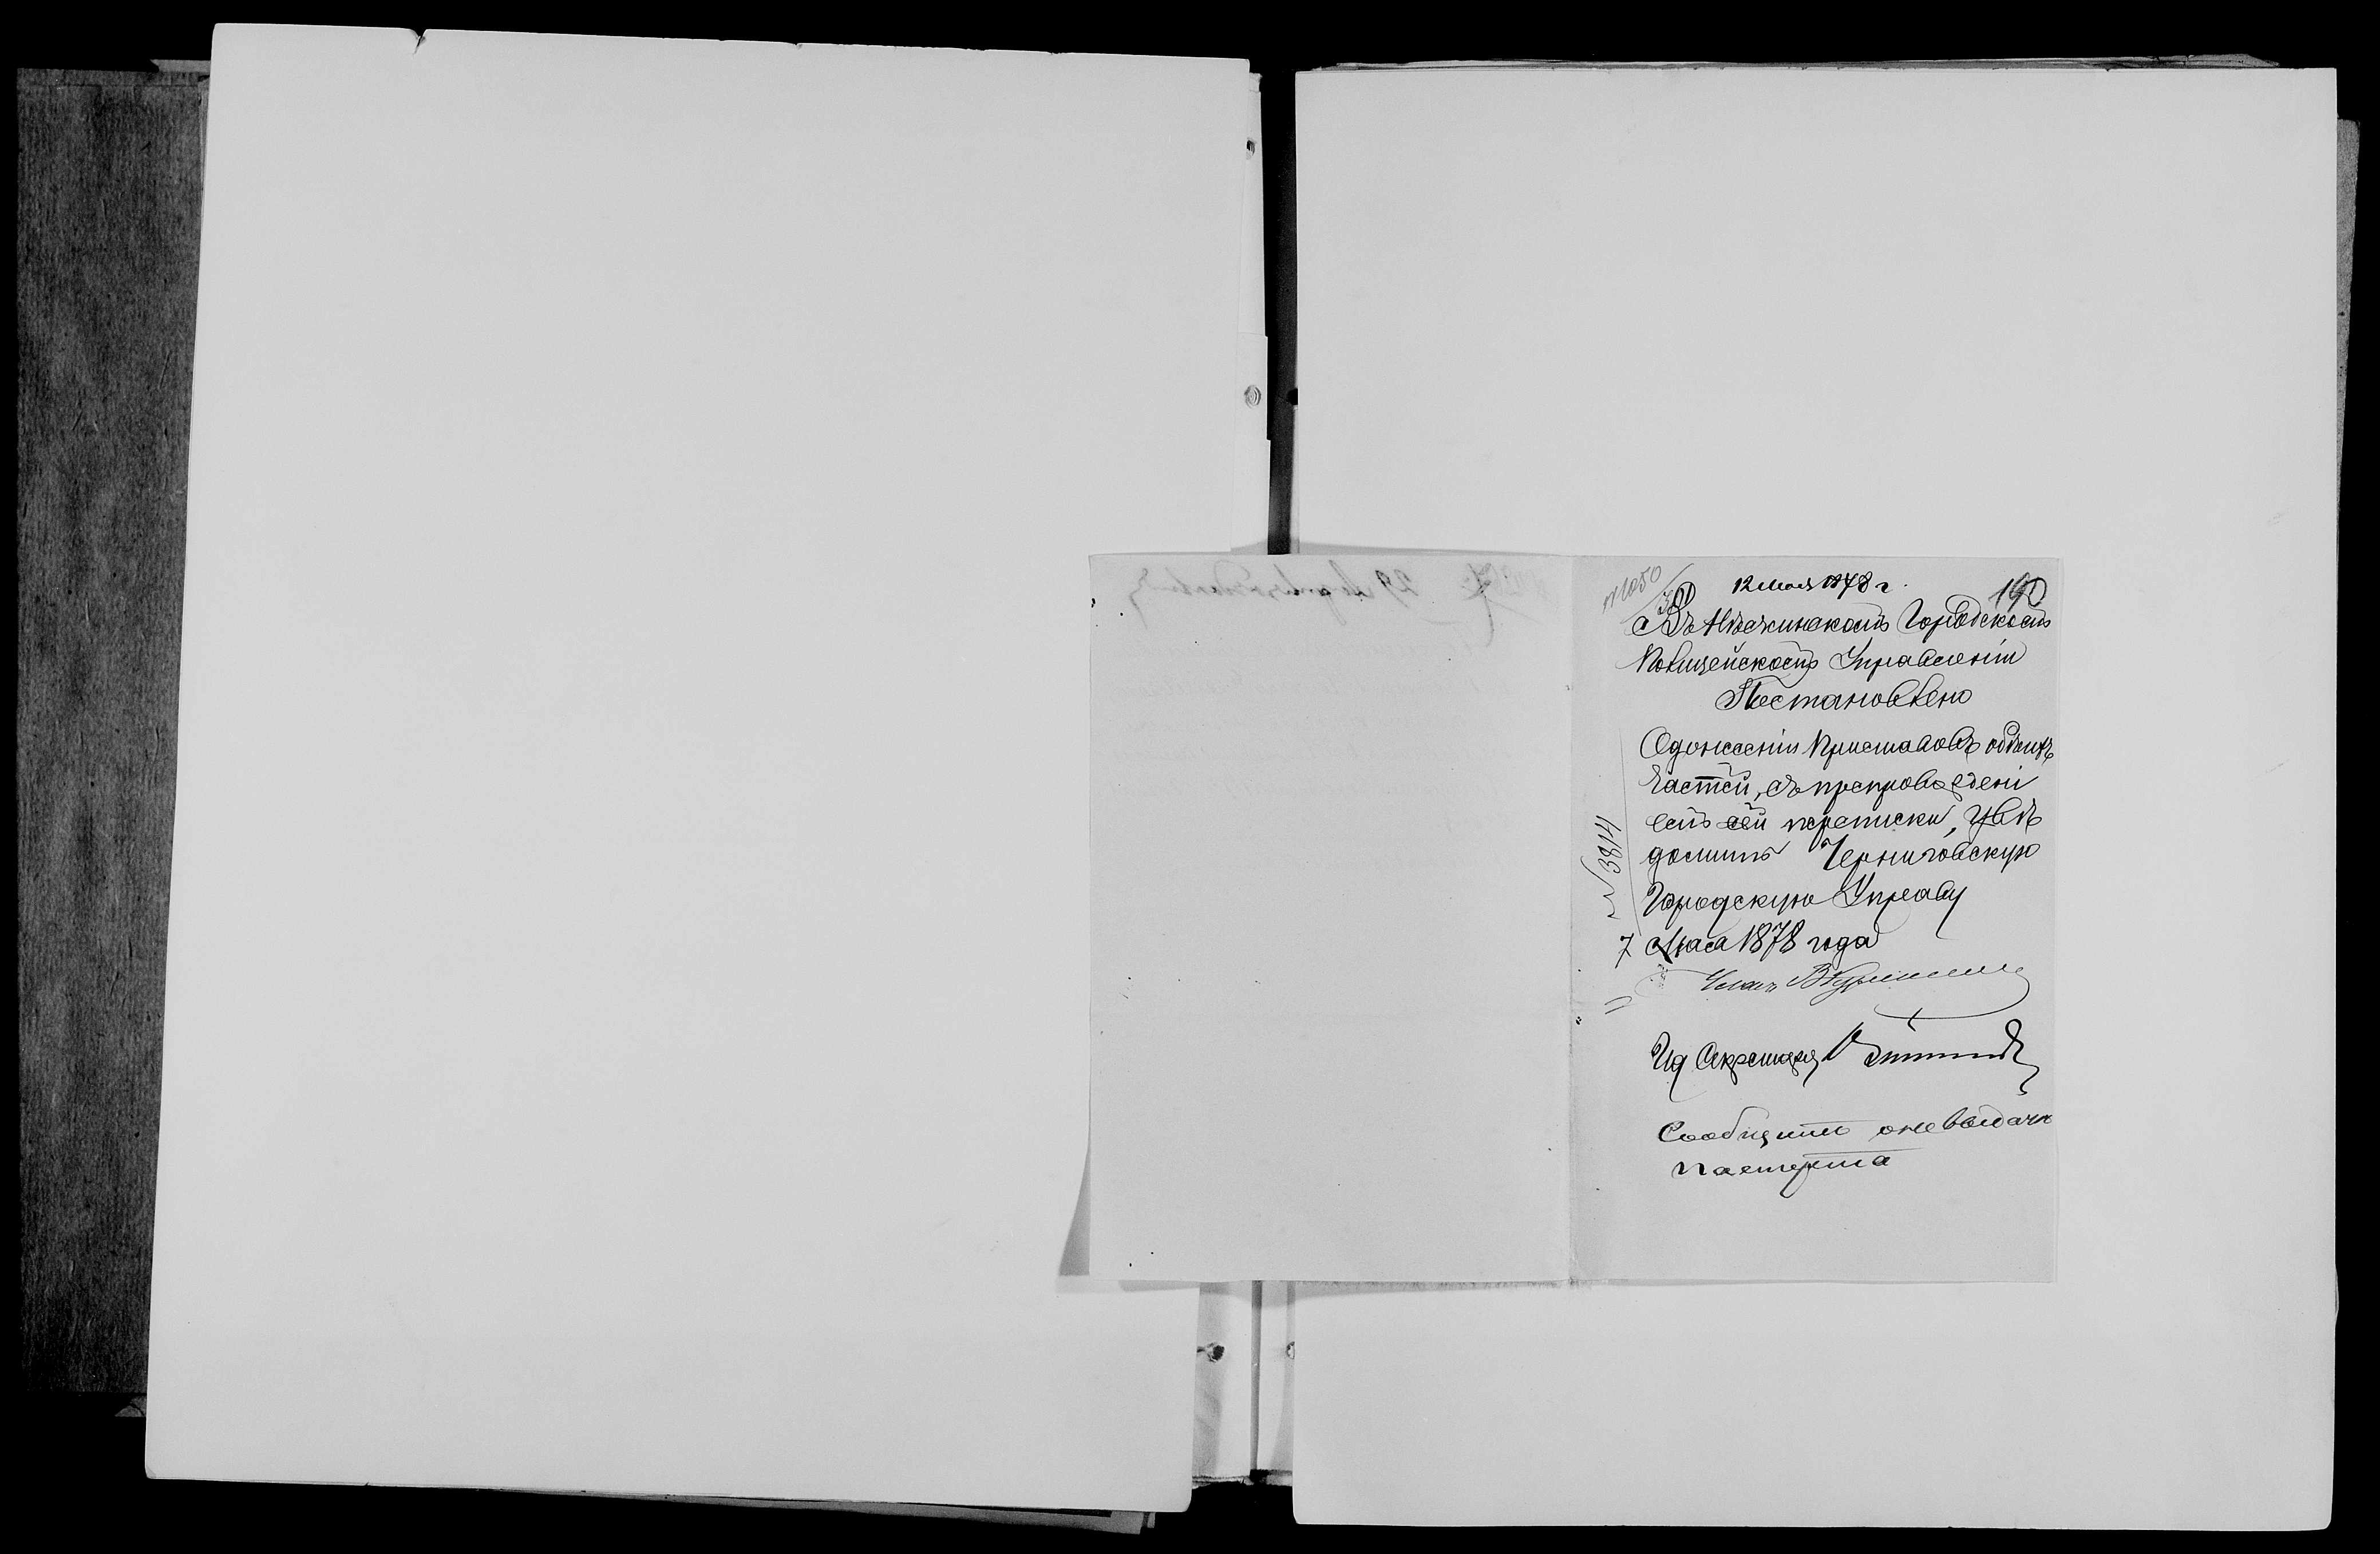 № 1050
301
12 Мая 1878 г.
190
Въ Нѣжинскомъ Городскомъ
Полицейскомъ Управленіи
Постановлено
О донесеніи Приставовъ обѣихъ
частей, съ препровожденi
емъ сей переписки, увѣ
домить Черниговскую
Городскую Управу
7 Мая 1878 года
№ 3814
Ид Секретаря
Сообщить о не выдачѣ
паспорта